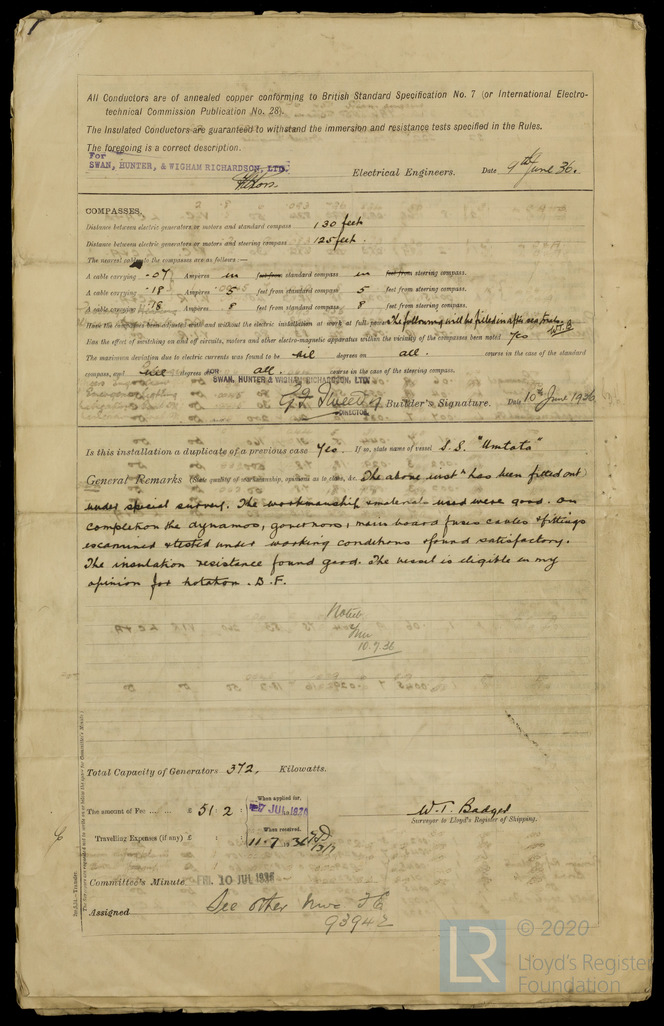 All Conductors are of annealed copper conforming to British Standard Specification No. 7 (or International Electro-
technical Commission Publication No. 28).
The Insulated Conductors are guaranteed to withstand the immersion and resistance tests specified in the Rules.
The foregoing is a correct description.
For
SWAN, HUNTER, & WIGHAM RICHARDSON, LTD.
Electrical Engineers. Date 9th June 36.
COMPASSES.
Distance between electric generators or motors and standard compass 130 feet
Distance between electric generators or motors and steering compass 125 feet.
The nearest cables to the compasses are as follows:—
A cable carrying .07 Amperes in feet from standard compass in feet from steering compass.
A cable carrying .18 Amperes 5 feet from standard compass 5 feet from steering compass.
A cable carrying .78 Amperes 8 feet from standard compass 8 feet from steering compass.
Have the compasses been adjusted with and without the electric installation at work at full power The following will be filled in after sea trials. W.T.B.
Has the effect of switching on and off circuits, motors and other electro-magnetic apparatus within the vicinity of the compasses been noted Yes
The maximum deviation due to electric currents was found to be nil degrees on all. course in the case of the standard
compass, and nil degrees on all. course in the case of the steering compass.
FOR
SWAN, HUNTER & WIGHAM RICHARDSON, LTD.
Builder's Signature. Date 10th June 1936
DIRECTOR.
Is this installation a duplicate of a previous case Yes. If so, state name of vessel S.S. "Umtata"
General Remarks (State quality of workmanship, opinions as to class, &c. The above instn has been fitted out
under special survey. The workmanship & material used were good. On
completion the dynamos, governors, main board fuses cables & fittings
examined & tested under working conditions & found satisfactory.
The insulation resistance found good. The vessel is eligible in my
opinion for notation. D.F.
Noted
10.7.36
Total Capacity of Generators 372. Kilowatts.
The amount of Fee .... ... £ 51 : 2 :
When applied for,
7 JUL 1936
Travelling Expenses (if any) £ : :
When received,
11.7.1936
13/7
W. T. Badger
Surveyor to Lloyd's Register of Shipping.
Committee's Minute FRI. 10 JUL 1936
Assigned See other Nwc F.E.
93942
© 2020
LR
Lloyd's Register
Foundation